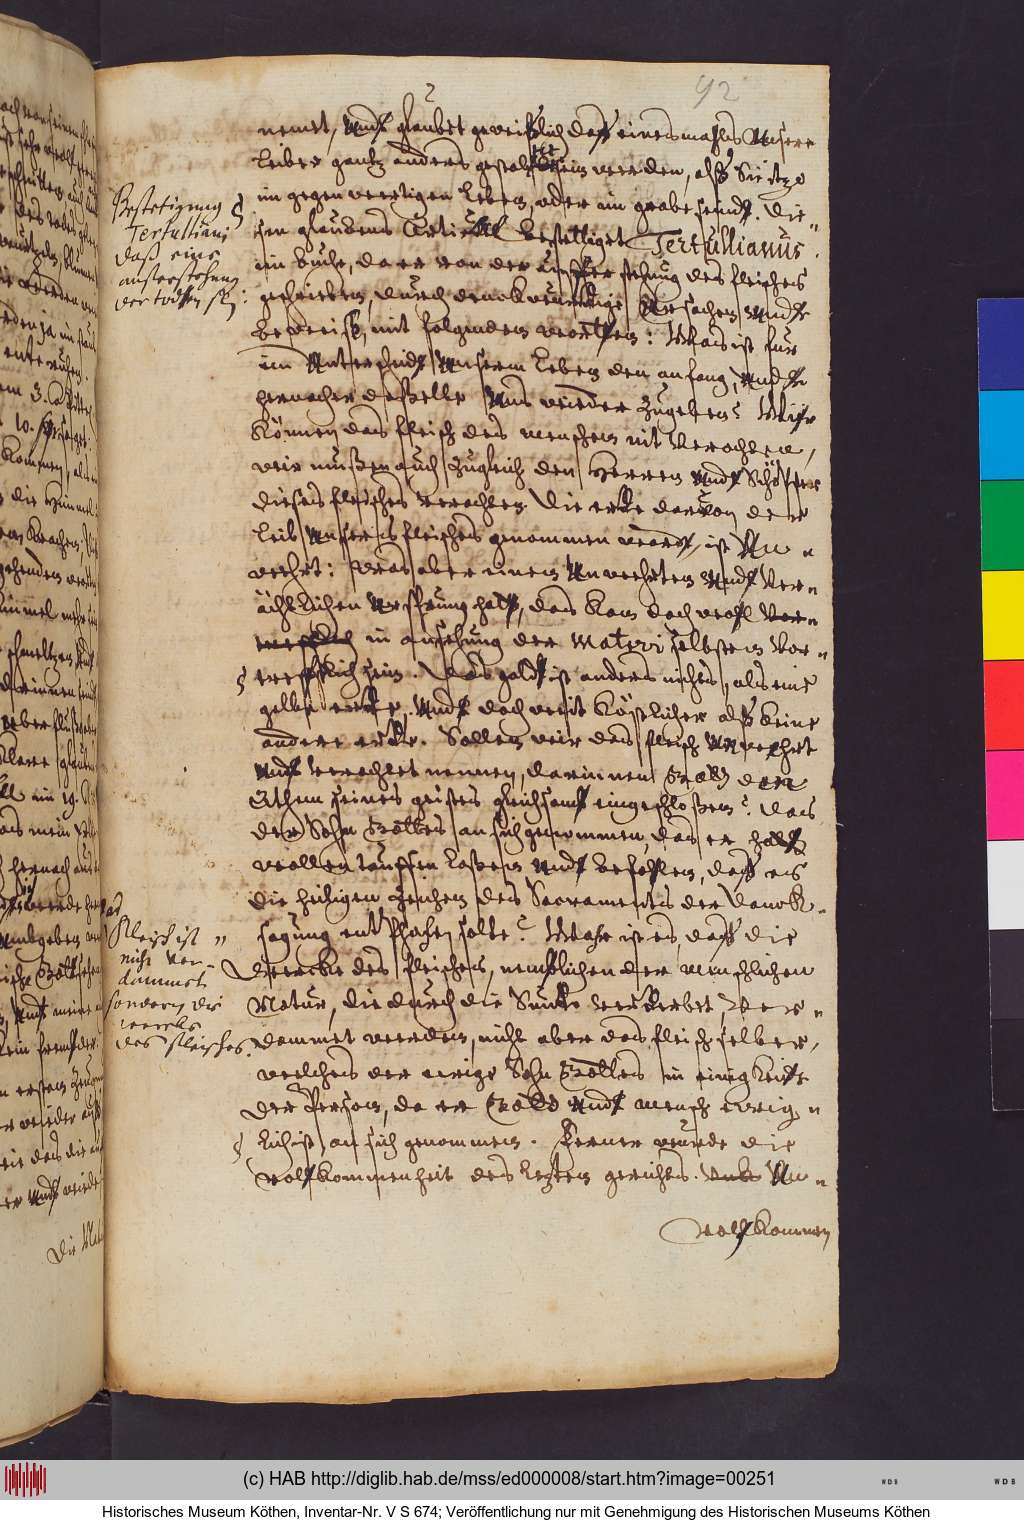 92
nemet, Undt glaubet gewißlich daß eines mahls Unsere
Leiber gantz anders gestaltet sein werden, alß Sie itzo
im gegenwertigen Leben, oder im grabe seindt. Die„
sen glaubens Articull bestettiget Tertullianus.
im buche, da er von der aufferstehung des fleisches
geschrieben, durch denckwürdige Ursachen Undt
beweiß, mit folgenden wortten: Was ist für
ein Unterscheidt Unserm Leben den anfang, Undt
hernacher daßelbe Uns wieder zugeben? Wier
können das fleisch des menschen nit Verachten,
wir müßen auch zugleich den Herren Undt Schöpffer
dieses fleisches Verachten. Die erde darvon der
Leib Unsers fleisches genommen wordt, ist Un„
wehrt: was aber einen Unwehrten Undt Ver„
ächtlichen Ursprung hatt, das kan doch wohl Vor„
in ansehung der Materi selbsten Vor„
trefflich sein. Das goldt ist anders nichts, als eine
gelbe erde, Undt doch weit köstlicher alß keine
andere erde. Sollen wir das fleisch Unwehrt
Undt Verachtet nennen, darinnen Gott den
Athem seines geistes gleichsamb eingeschloßen? Das
der Sohn Gottes an sich genommen, das er hatt
wollen tauffen laßen Undt befohlen, daß es
die heiligen Zeichen des Sacraments der Danck„
sagung entpfahen solte? Wahr ist es, daß die
Wercke des fleisches, nemblichen der menschlichen
Natur, die durch die Sünde verderbet, Ver„
dammet werden, nicht aber das fleisch selber,
welches der ewige Sohn Gottes in einigkeit
der Person, da er Gott Undt mensch ewig„
lich ist, an sich genommen. Ferner wurde die
volkommenheit des Letzten gerichts. Un„
volkommen
Bestetigung
Tertulliani
daß eine
aufferstehung
der todten sey:
das
Fleisch ist
nicht ver„
dammet
sondern die
wercke
des fleisches.
(c) HAB http://diglib.hab.de/mss/ed000008/start.htm?image=00251
WDB
WDB
Historisches Museum Köthen, Inventar-Nr. V S 674; Veröffentlichung nur mit Genehmigung des Historischen Museums Köthen